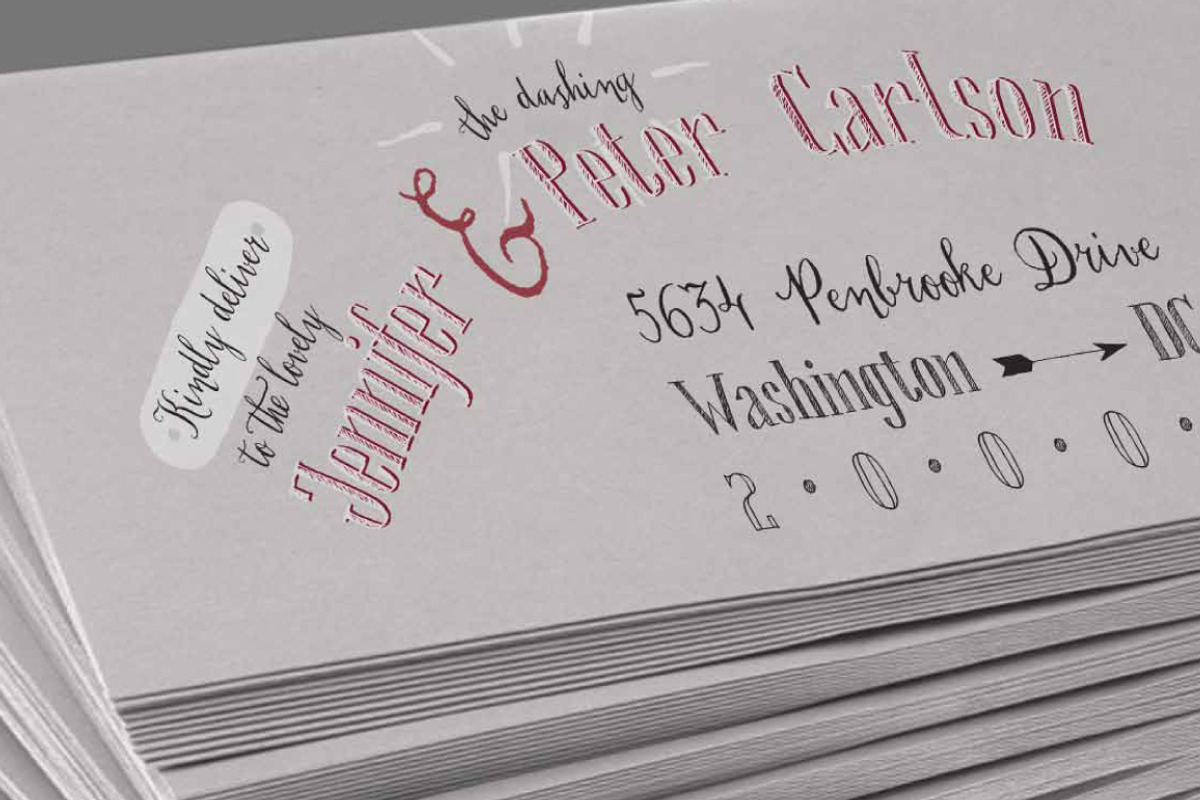 Kindly deliver
to the lovely
Jennifer
&
the dashing
Peter Carlson
5634 Penbrooke Drive
Washington DC
2 • 0 • 0 • 0 •